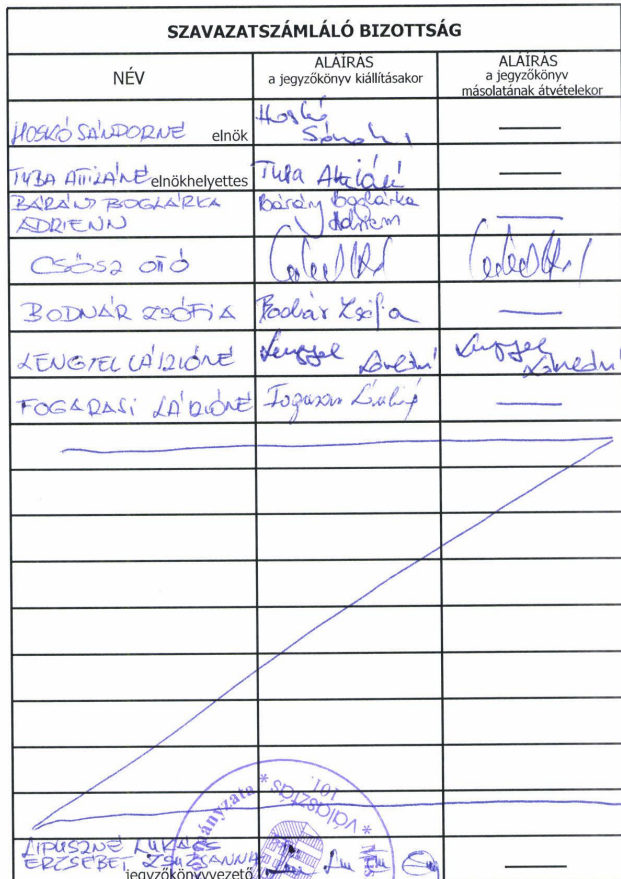 SZAVAZATSZÁMLÁLÓ BIZOTTSÁG
NÉV
ALÁÍRÁS
a jegyzőkönyv kiállításakor
ALÁÍRÁS
a jegyzőkönyv
másolatának átvételekor
HOSKÓ SÁNDORNÉ elnök
Hoskó
TUBA ATTILÁNÉ elnökhelyettes Tuba Attiláné
BÁRÁNY BOGLÁRKA
ADRIENN
Bárány Boglárka
Adrienn
CSŐSZ OTTÓ
BODNÁR ZSÓFIA Bodnár Zsófia
LENGYEL LÁSZLÓNÉ Lengyel Lászlóné Lengyel Lászlóné
FOGARASI LÁSZLÓNÉ
LIPUSZNÉ LUKÁCS
ERZSÉBET ZSUZSANNA
jegyzőkönyvvezető
ányzata * 101. választás *